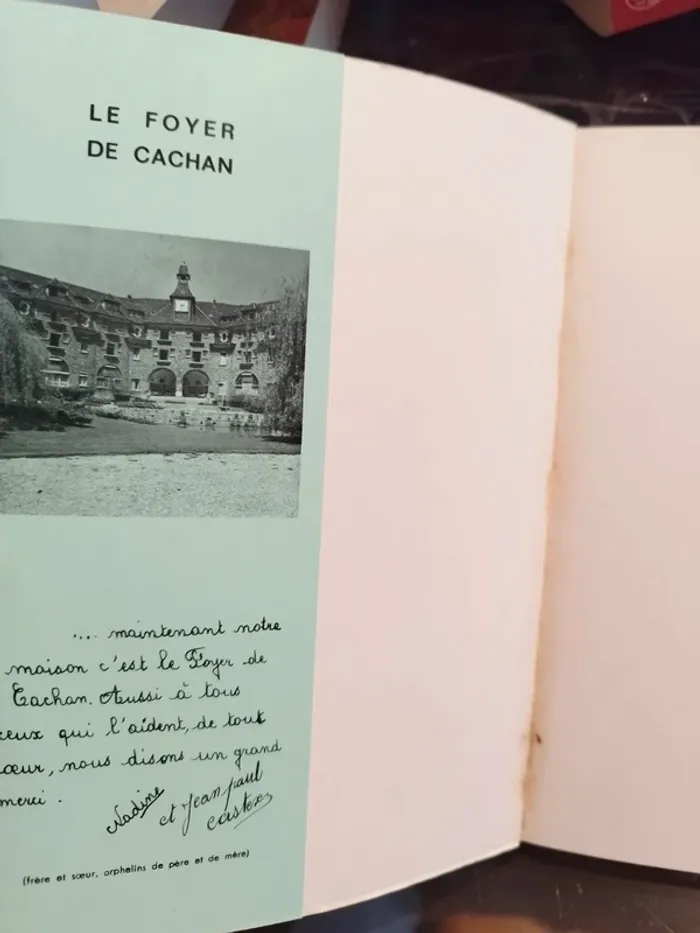 LE FOYER
DE CACHAN
... maintenant notre
maison c'est le Foyer de
Cachan. Aussi à tous
ceux qui l'aident, de tout
cœur, nous disons un grand
merci.
Nadine et Jean paul
castex
(frère et sœur, orphelins de père et de mère)